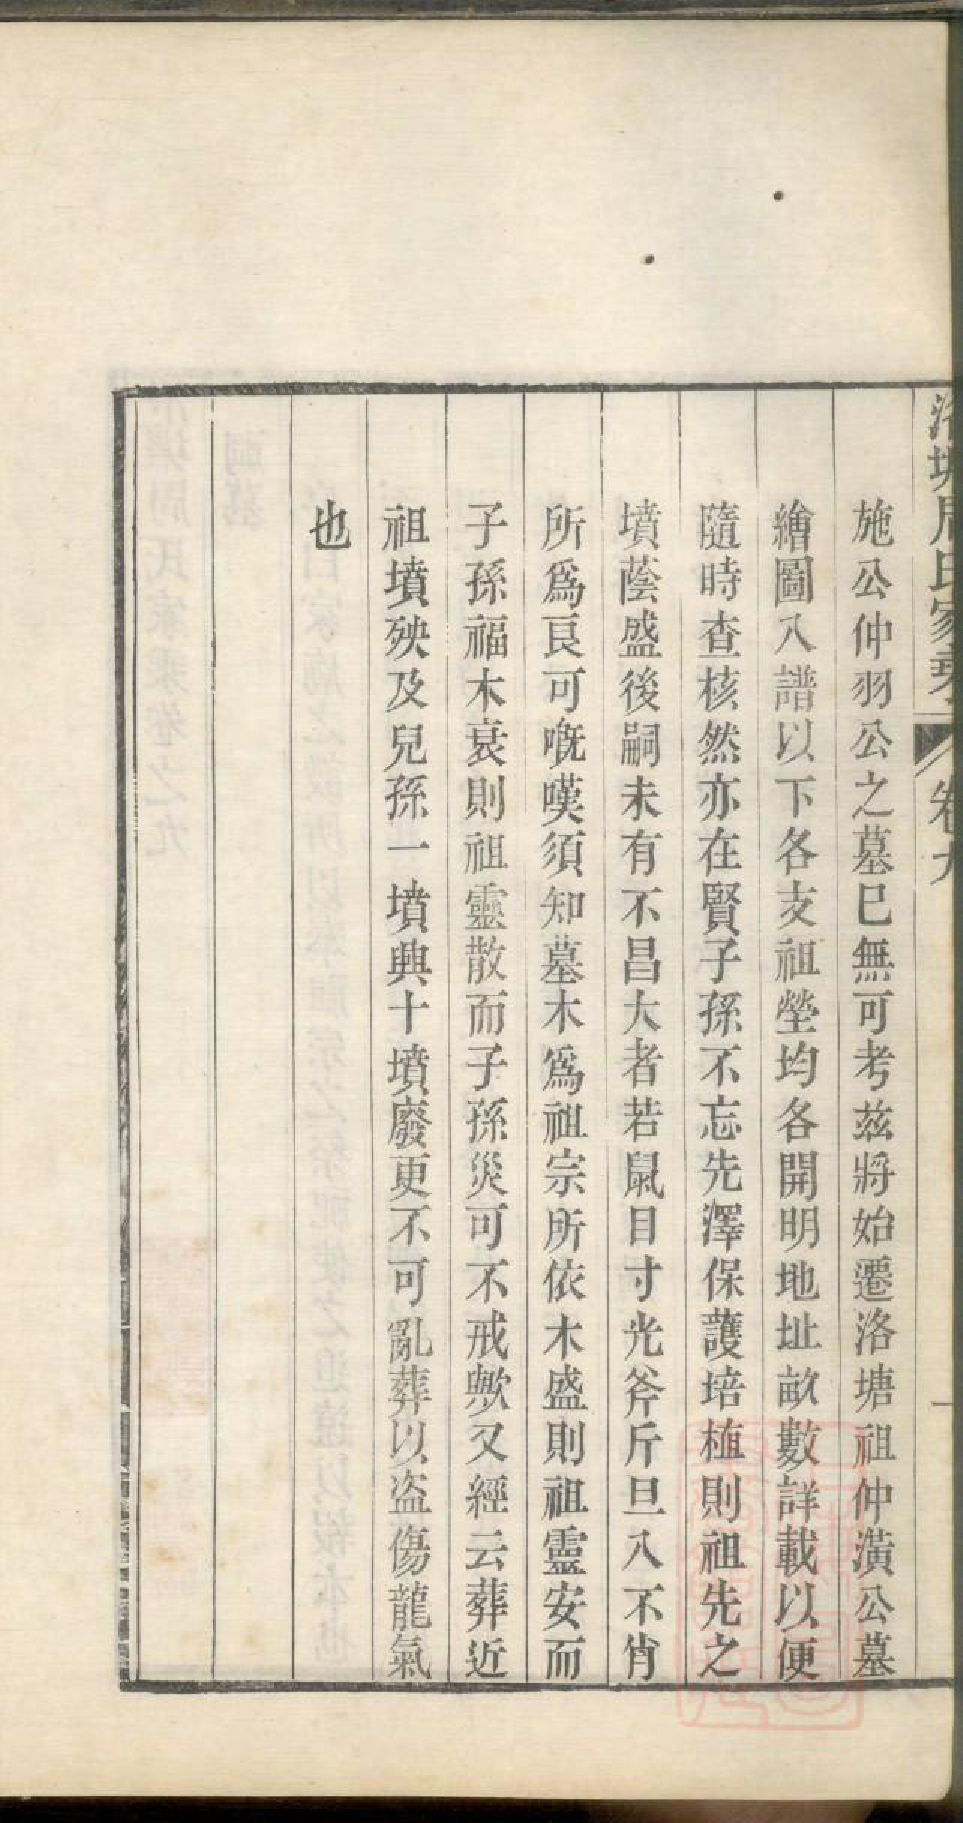 洛塘周氏家乘 卷九 一
施公仲羽公之墓巳無可考茲將始遷洛塘祖仲潢公墓
繪圖入譜以下各支祖塋均各開明地址畝數詳載以便
隨時查核然亦在賢子孫不忘先澤保護培植則祖先之
墳蔭盛後嗣未有不昌大者若鼠目寸光斧斤旦入不肖
所爲良可嘅嘆須知墓木爲祖宗所依木盛則祖靈安而
子孫福木衰則祖靈散而子孫災可不戒歟又經云葬近
祖墳殃及兒孫一墳興十墳廢更不可亂葬以盗傷龍氣
也